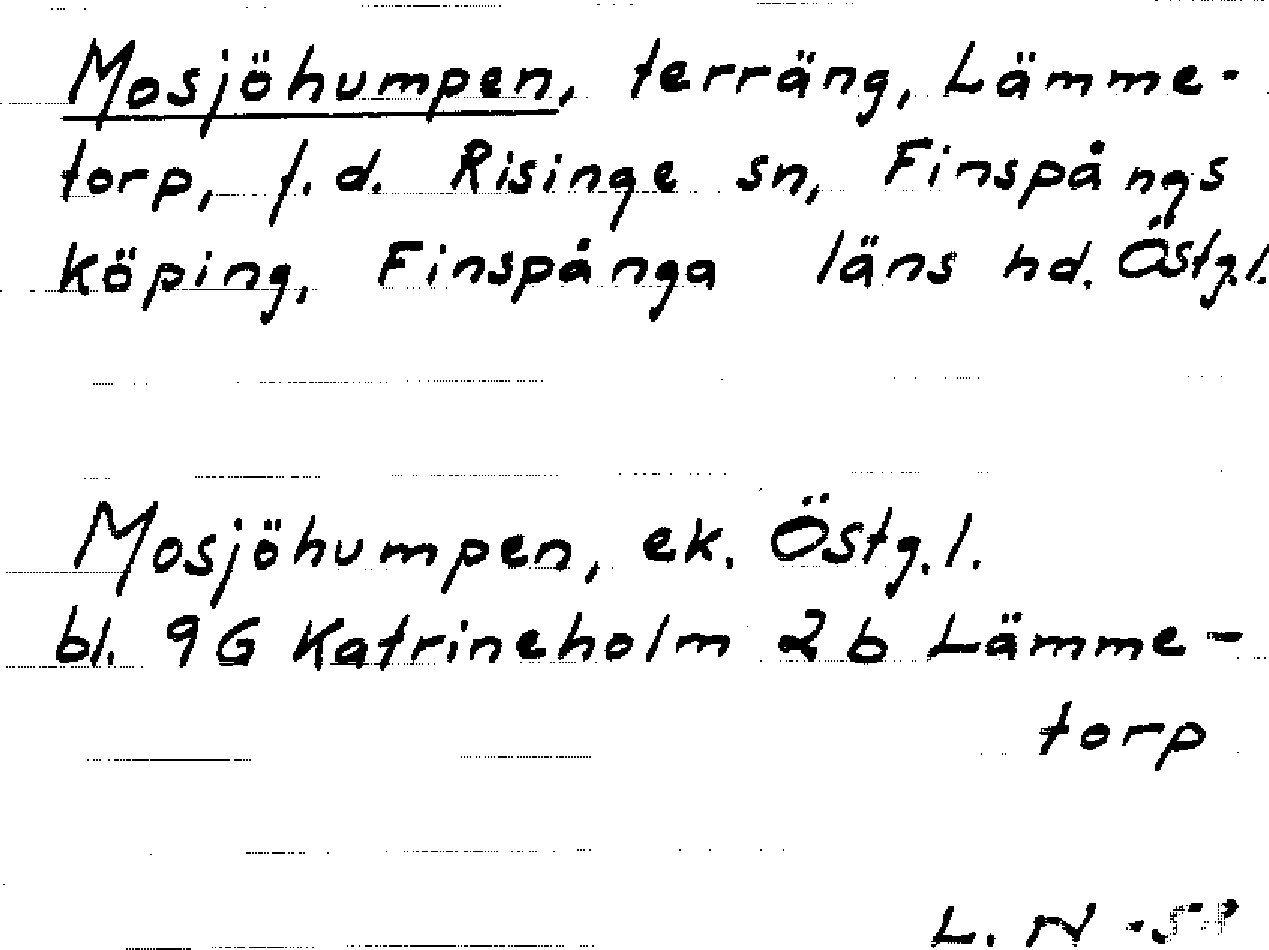 Mosjöhumpen, terräng, Lämme-
torp, f.d. Risinge sn, Finspångs
köping, Finspånga läns hd. Östg.l.
Mosjöhumpen, ek. Östg.l.
bl. 9G Katrineholm 2b Lämme-
torp
L. N